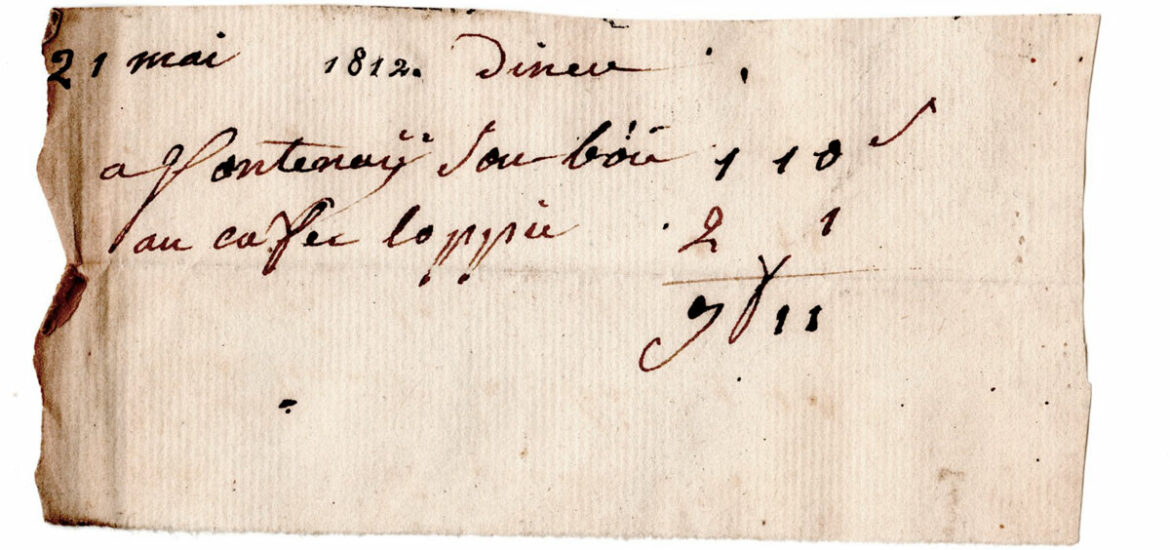 21 mai 1812. Diner
a fontenaÿ sou boü 1 10 s
au cafee loppie 2 1
3 11